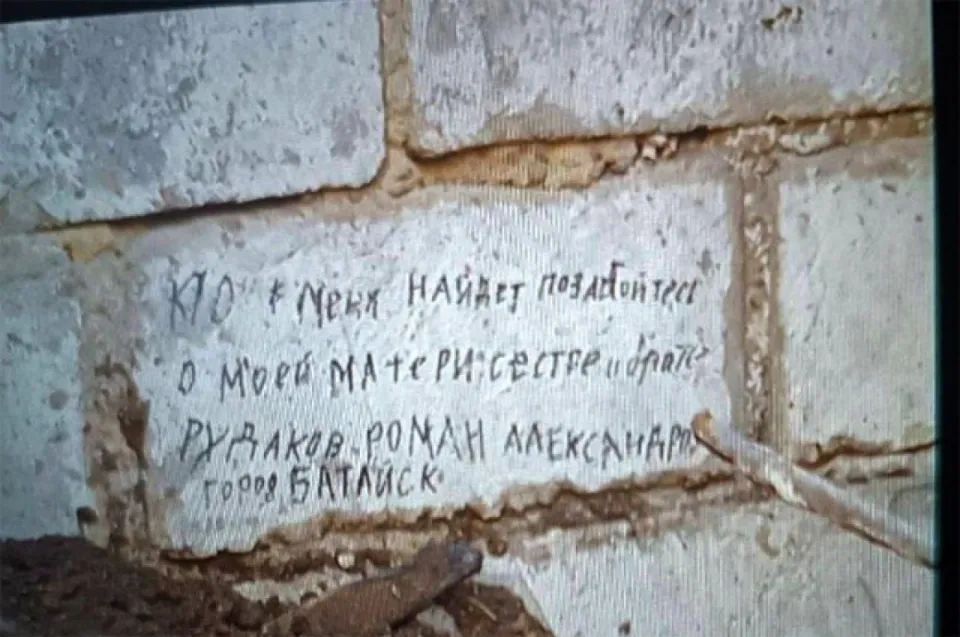 КТО меня НАЙДЕТ позаботьтесь
О моей МАТЕРИ СЕСТРЕ и брате
РУДАКОВ РОМАН АЛЕКСАНДРО
город БАТАЙСК